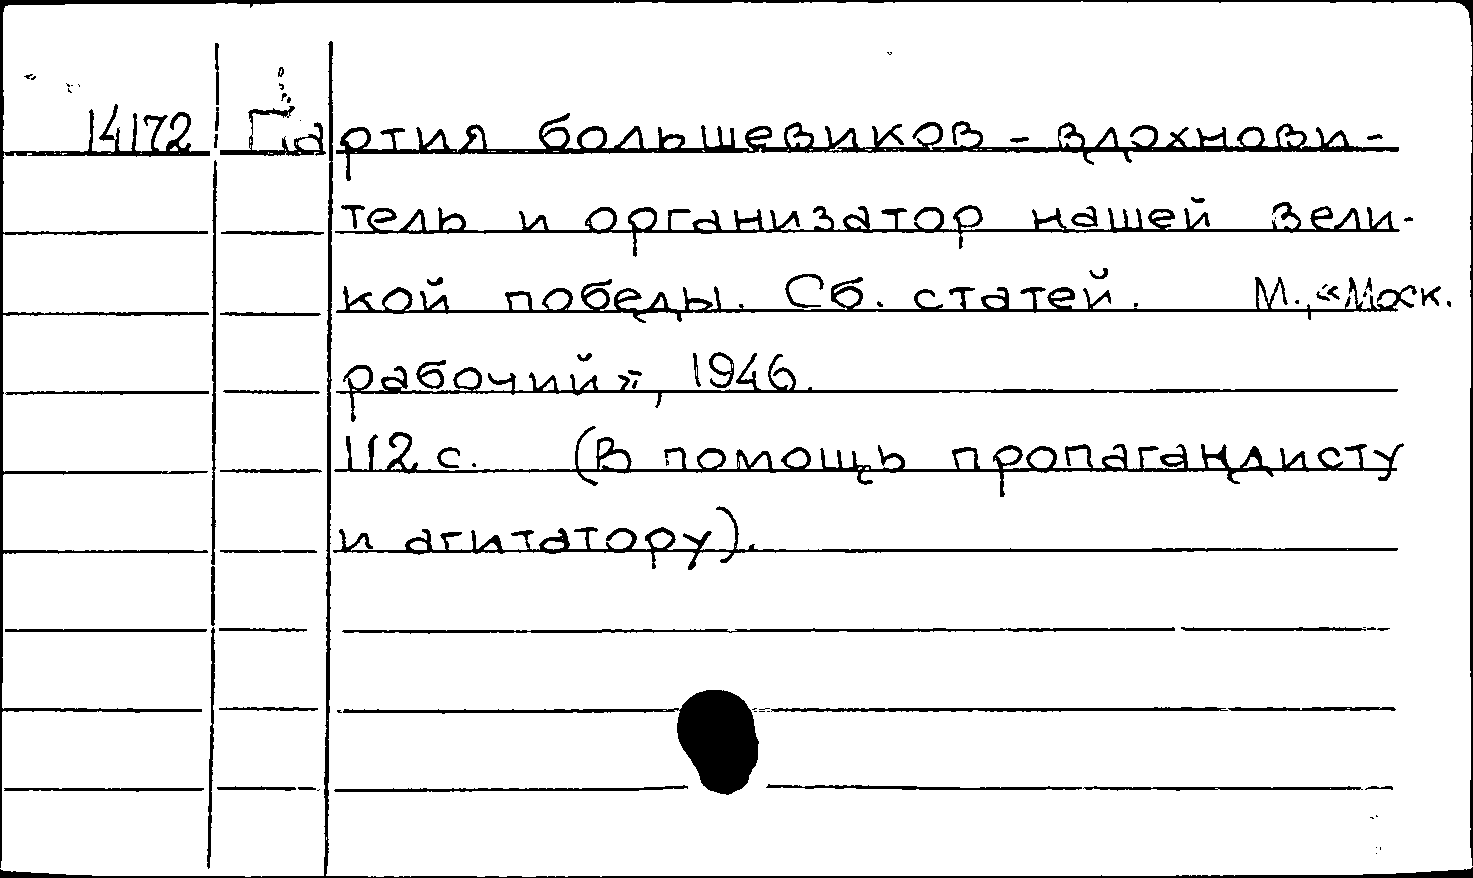 14172 Партия большевиков - вдохнови-
тель и организатор нашей вели-
кой победы. Сб. статей. М., «Моск.
рабочий», 1946.
112 с. (В помощь пропагандисту
и агитатору).